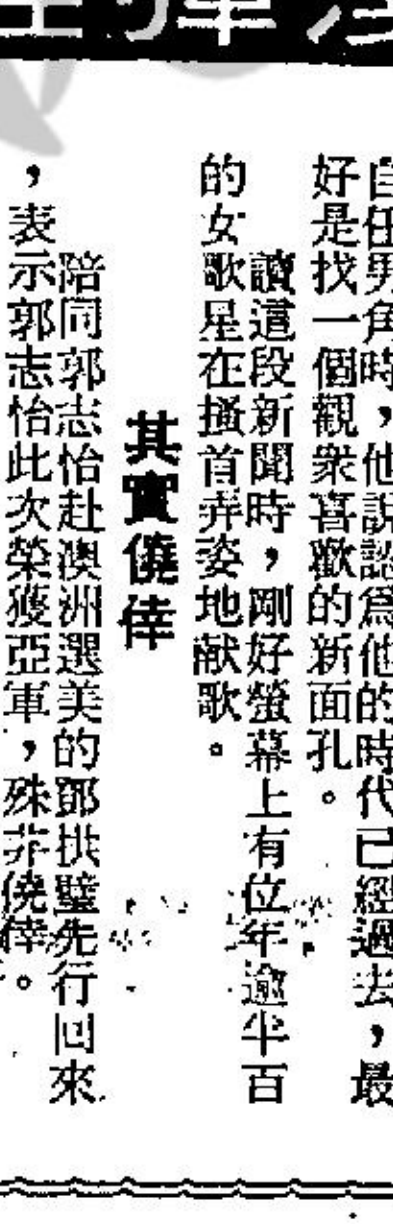 自任男角時，他說認爲他的時代已經過去，最
好是找一個觀衆喜歡的新面孔。
讀這段新聞時，剛好螢幕上有位年逾半百
的女歌星在搔首弄姿地献歌。
其實僥倖
陪同郭志怡赴澳洲選美的鄧拱璧先行回來
，表示郭志怡此次榮獲亞軍，殊非僥倖。